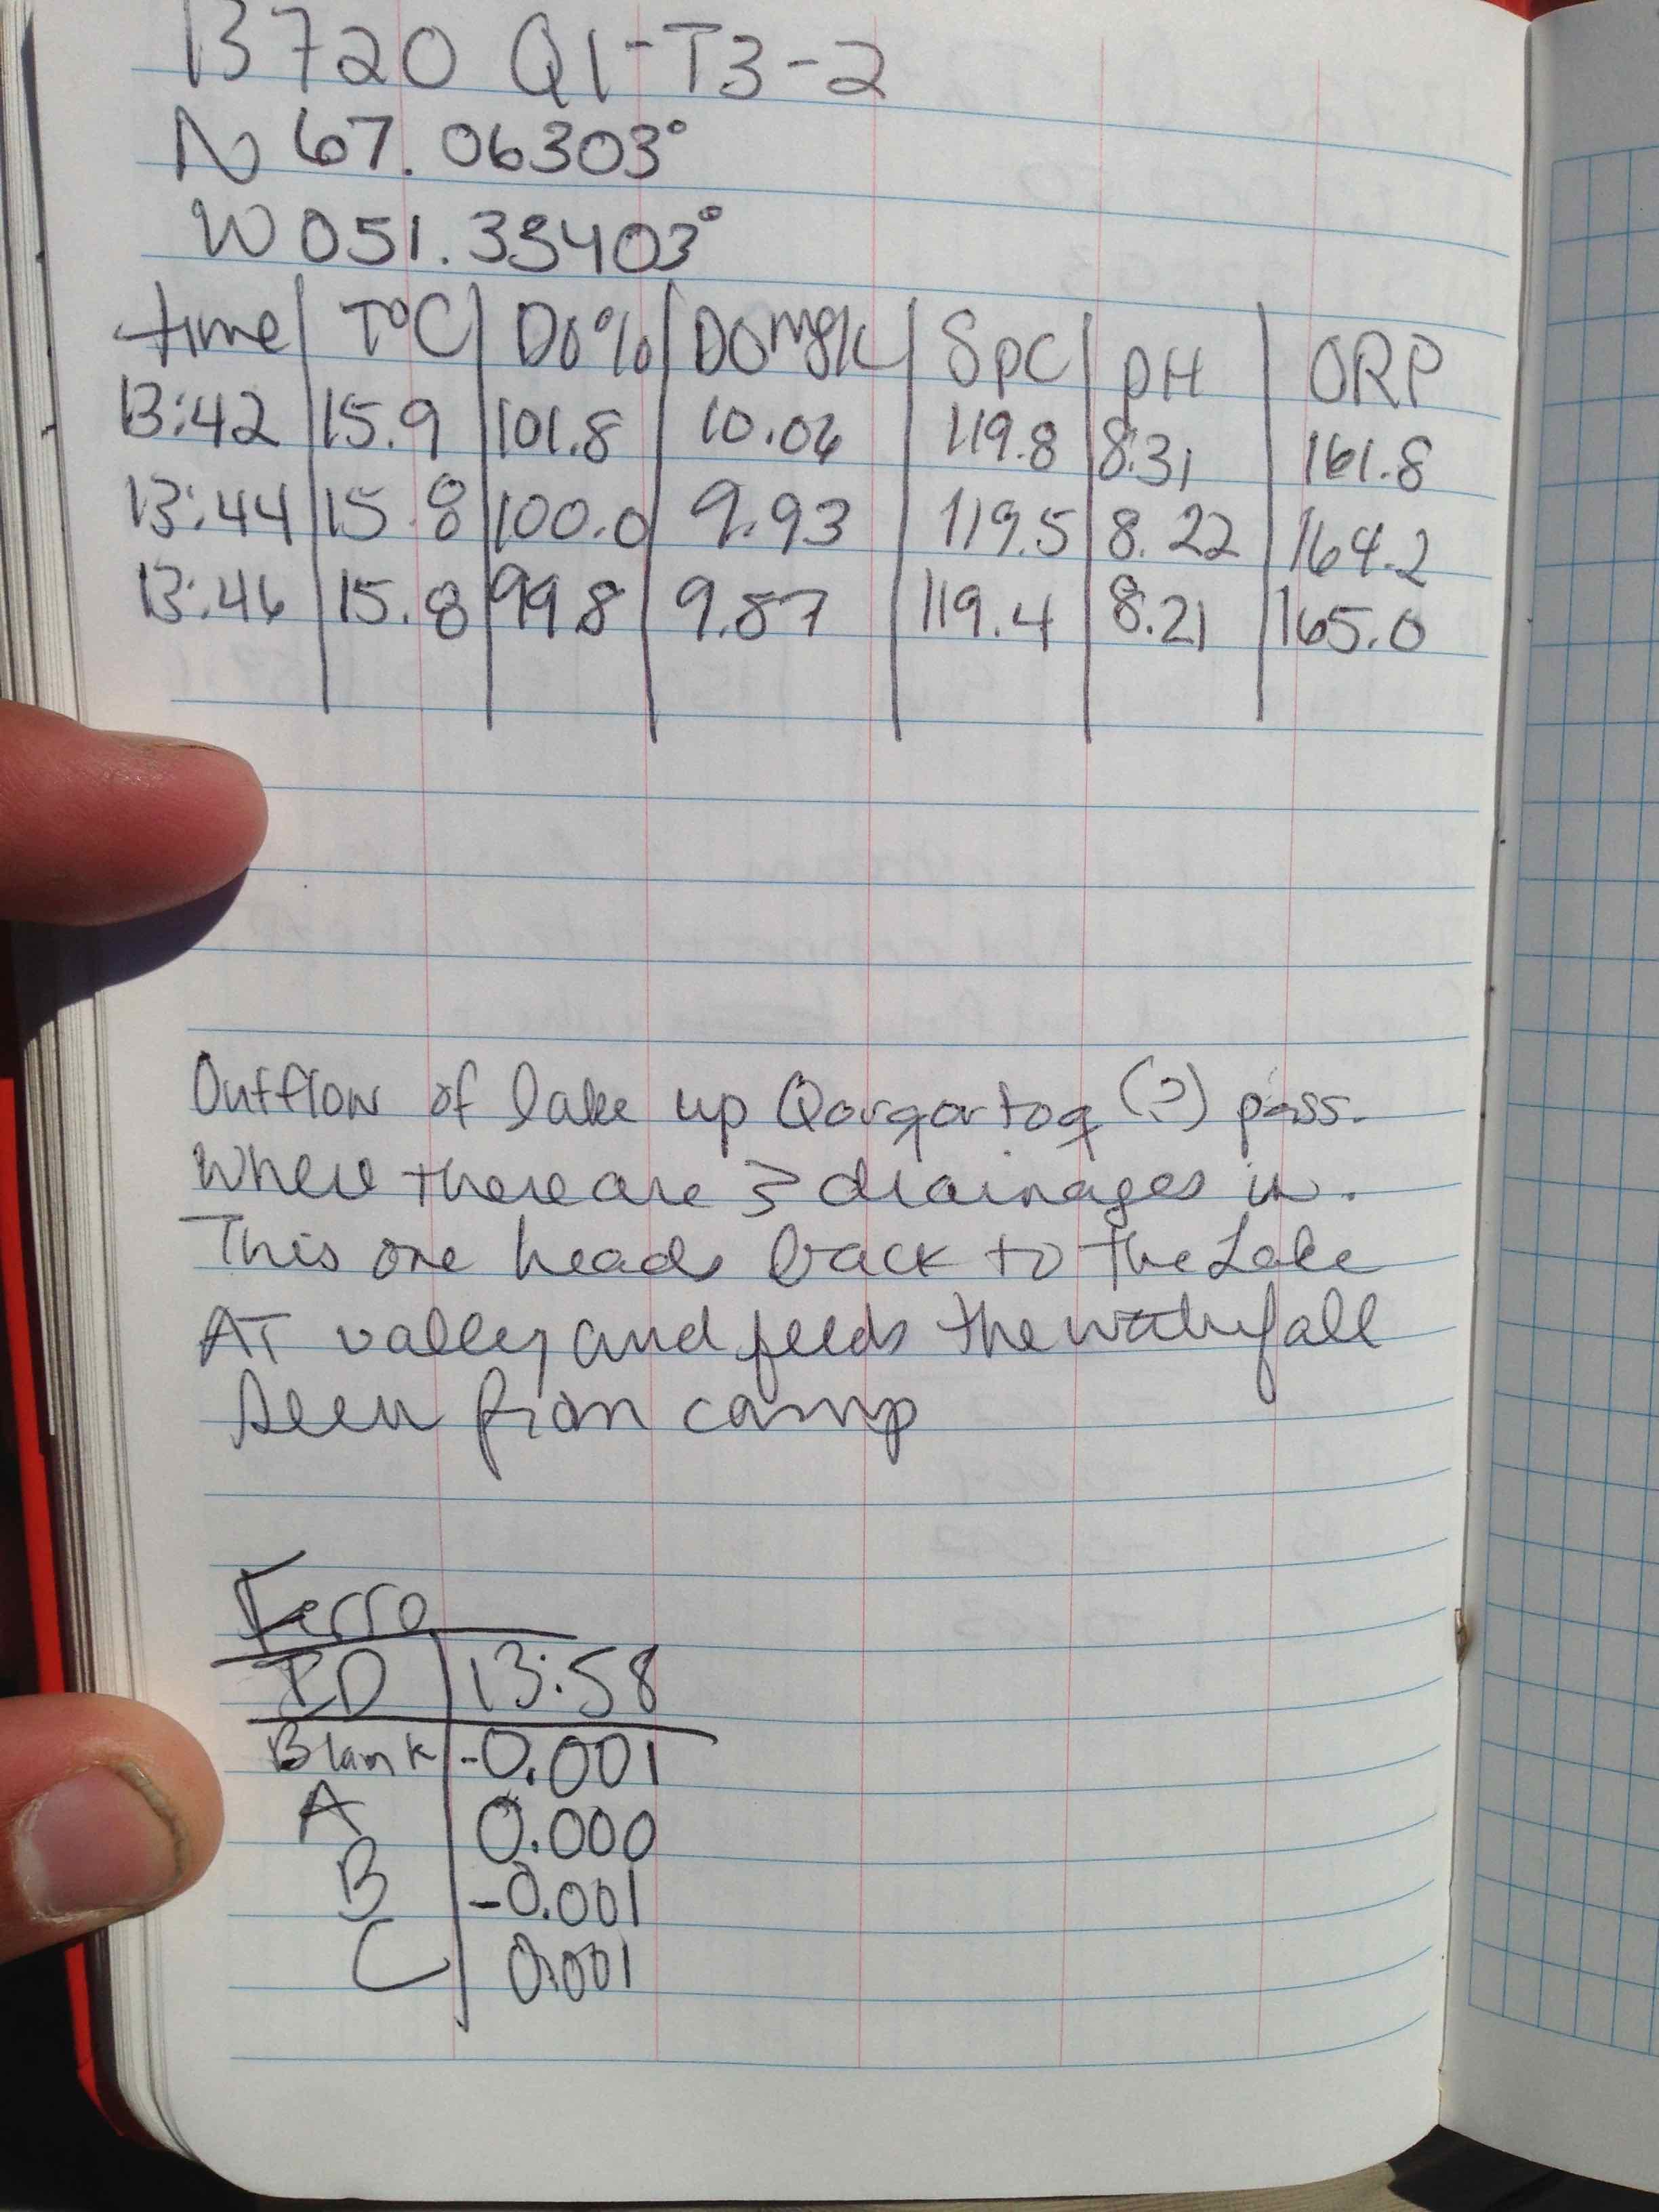 13720 Q1-T3-2
N 67.06303°
W 051.35403°
time | T°C | DO% | DO mg/L | SpC | pH | ORP
13:42 | 15.9 | 101.8 | 10.06 | 119.8 | 8.31 | 161.8
13:44 | 15.8 | 100.0 | 9.93 | 119.5 | 8.22 | 164.2
13:46 | 15.8 | 99.8 | 9.87 | 119.4 | 8.21 | 165.0
Outflow of lake up Qorqortoq (?) pass.
Where there are 3 drainages in.
This one heads back to the Lake
AT valley and feeds the waterfall
seen from camp
Ferro
ID | 13:58
Blank | -0.001
A | 0.000
B | -0.001
C | 0.001